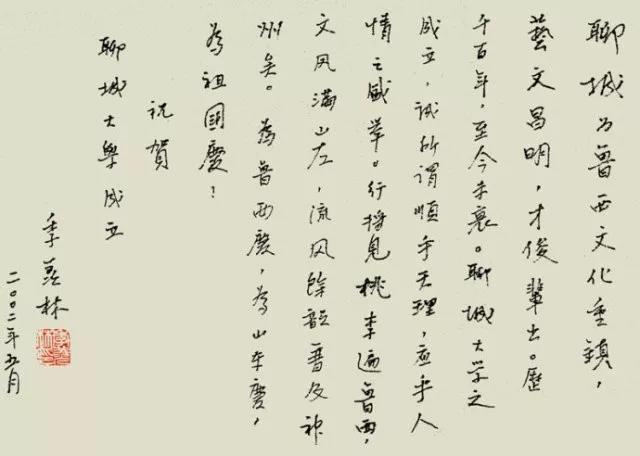 聊城为魯西文化重鎮，
藝文昌明，才俊輩出。歷
千百年，至今未衰。聊城大学之
成立，诚所謂順乎天理，应乎人
情之盛举。行将見桃李遍魯西，
文风满山左，流风餘韵普及神
州矣。為魯西慶，為山东慶，
為祖国慶！
祝賀
聊城大學成立
季羡林
二〇〇二年五月